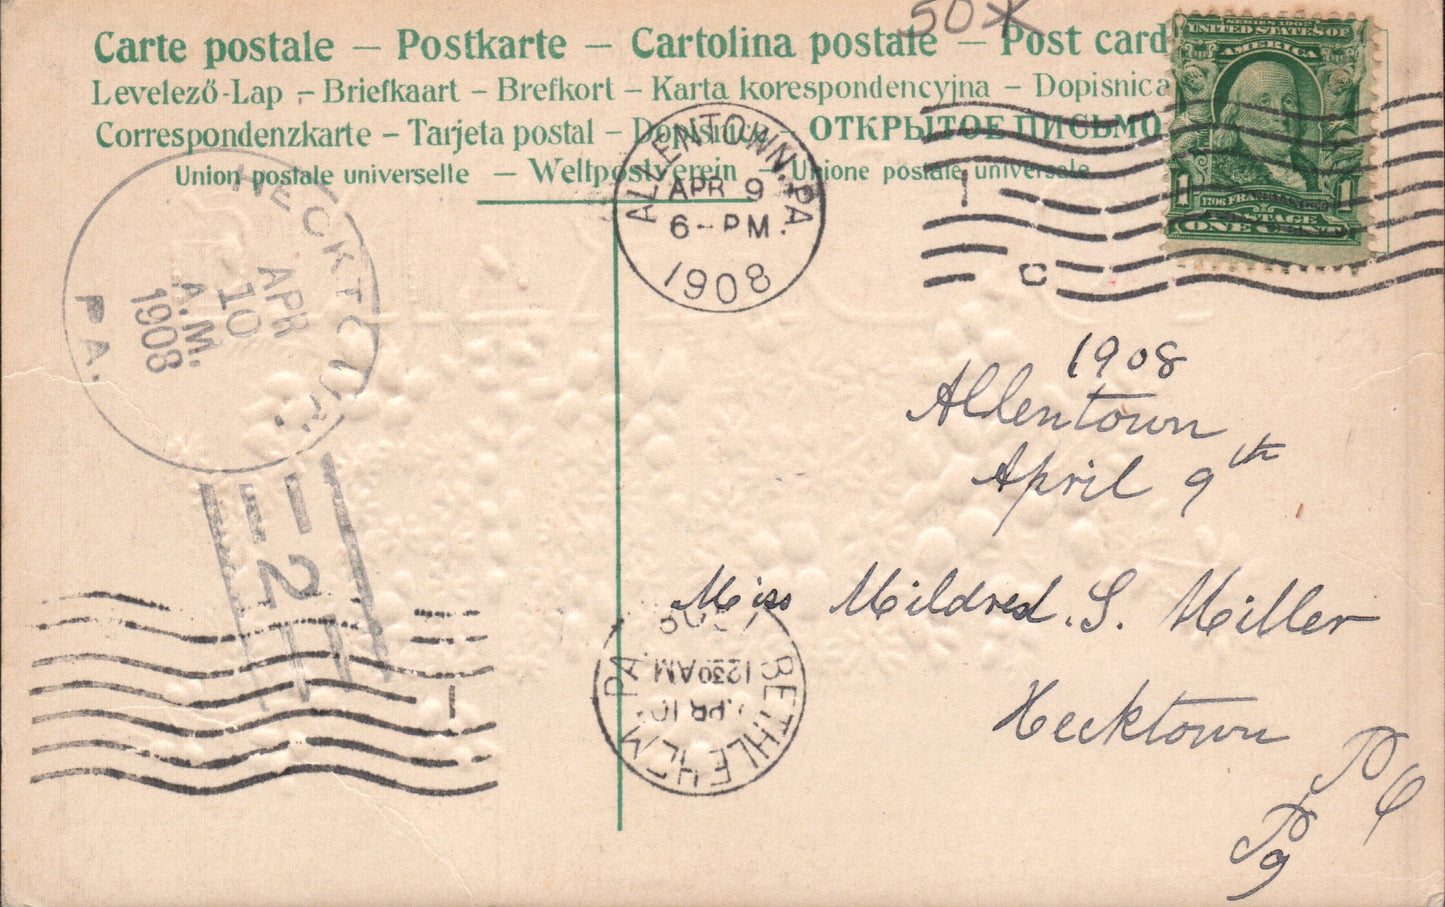 50
Carte postale – Postkarte – Cartolina postale – Post card
Levelező-Lap – Briefkaart – Brefkort – Karta korespondencyjna – Dopisnica
Correspondenzkarte – Tarjeta postal – Dopisnice – ОТКРЫТОЕ ПИСЬМО
Union postale universelle – Weltpostverein – Unione postale universale
SERIES 1902
UNITED STATES OF
AMERICA
1 1
POSTAGE
ONE CENT
ALLENTOWN, PA
APR 9
6-PM.
1908
HECKTOWN
APR
10
A.M.
1908
PA.
2
1908
Allentown
April 9th
Miss Mildred. S. Miller
Hecktown
Pa
BETHLEHEM PA.
APR 10
1230AM